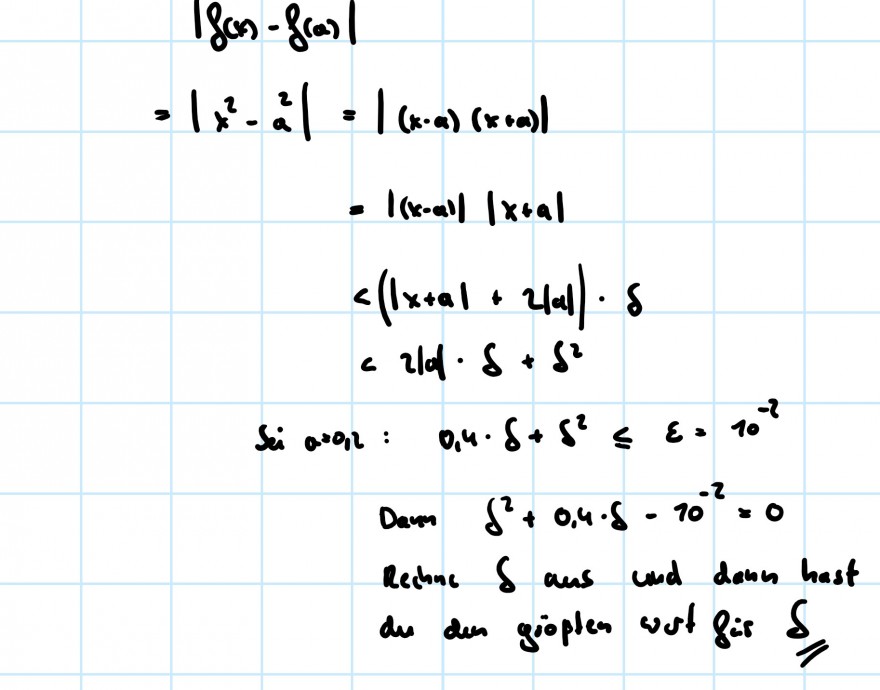 |f(x) - f(a)|
= |x² - a²| = |(x-a) (x+a)|
= |(x-a)| |x+a|
< (|x+a| + 2|a|) · δ
< 2|a| · δ + δ²
Sei a=0,2 : 0,4 · δ + δ² ≤ ε = 10⁻²
Dann δ² + 0,4 · δ - 10⁻² = 0
Rechne δ aus und dann hast
du den größten wert für δ